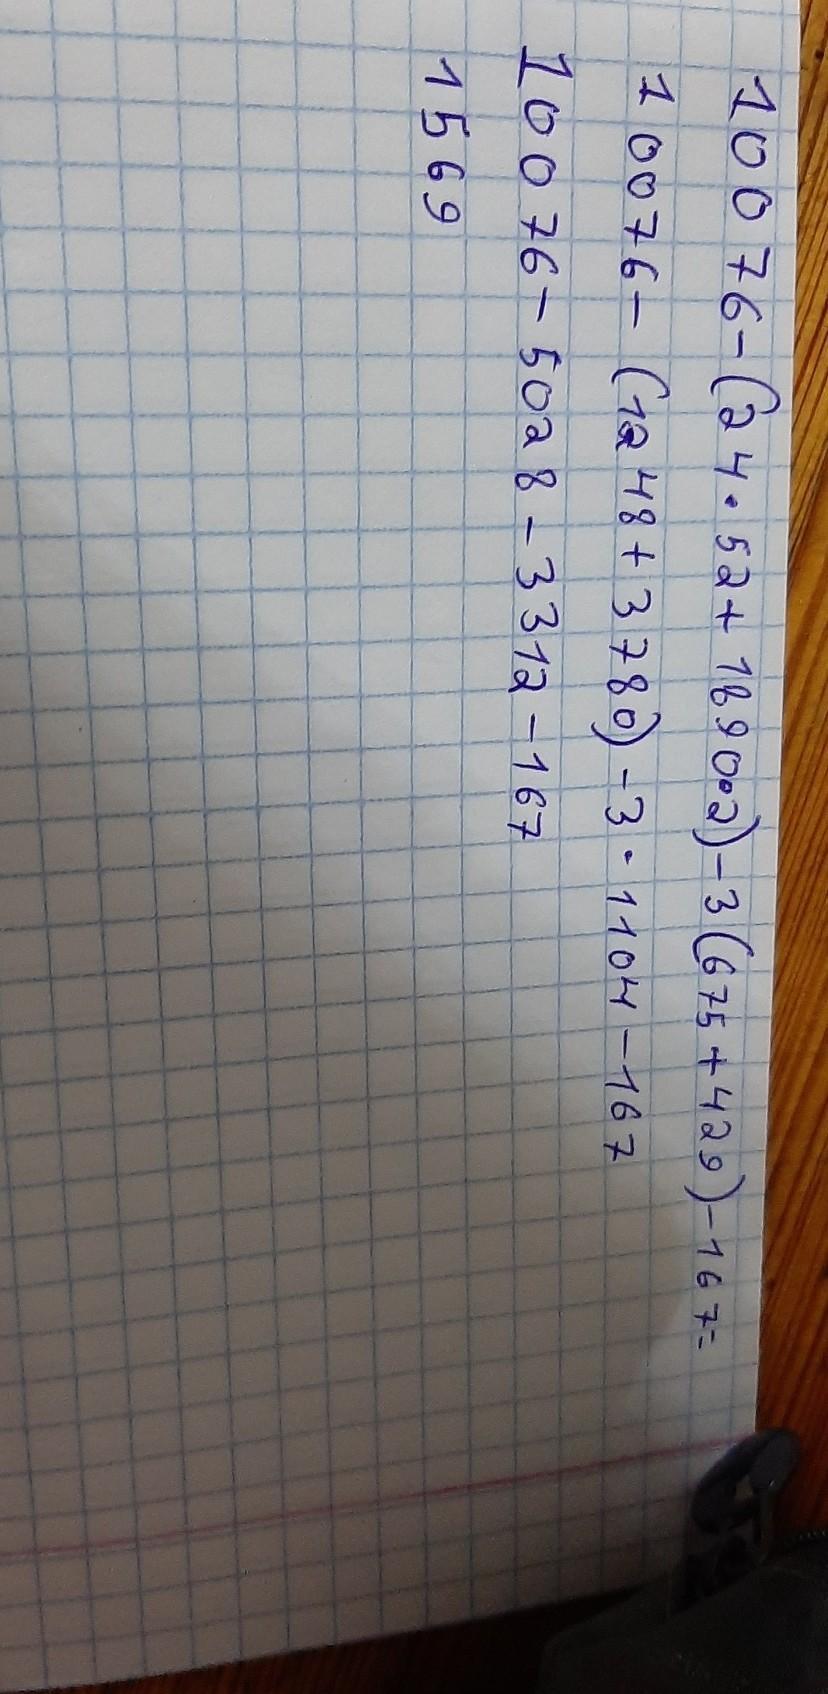 10076-(24·52+1890·2)-3(675+429)-167=
10076-(1248+3780)-3·1104-167
10076-5028-3312-167
1569